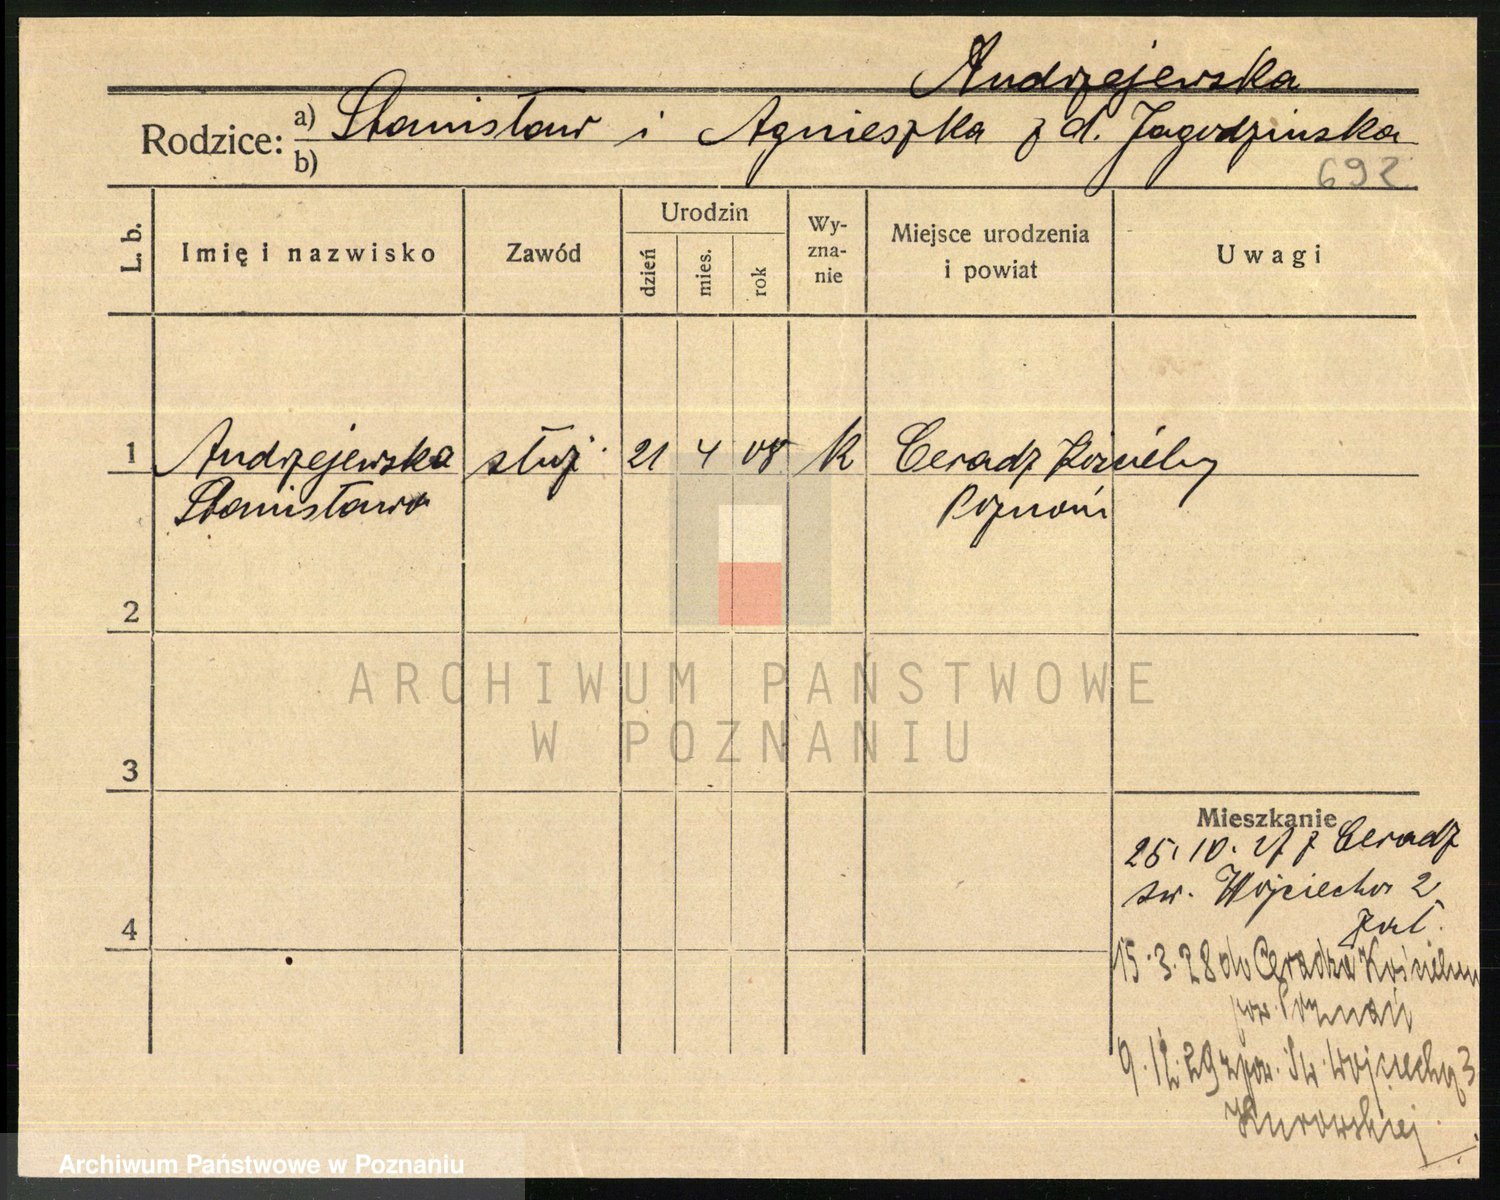 Andrzejewska
Rodzice: a) Stanisław i Agnieszka z d. Jagodzinska
b)
692
L. b.
Imię i nazwisko
Zawód
Urodzin
dzień
mies.
rok
Wy-
zna-
nie
Miejsce urodzenia
i powiat
Uwagi
1 Andrzejewska służ. 21 4 08 K Ceradz Kościelny
Stanisława Poznań
2
ARCHIWUM PAŃSTWOWE
W POZNANIU
3
Mieszkanie
25.10.27 z Ceradz
św. Wojciecha 2
4
15.3.28 do Ceradza Kościeln
pow. Poznań
9.12.29 z pow. Św. Wojciecha 3
Archiwum Państwowe w Poznaniu